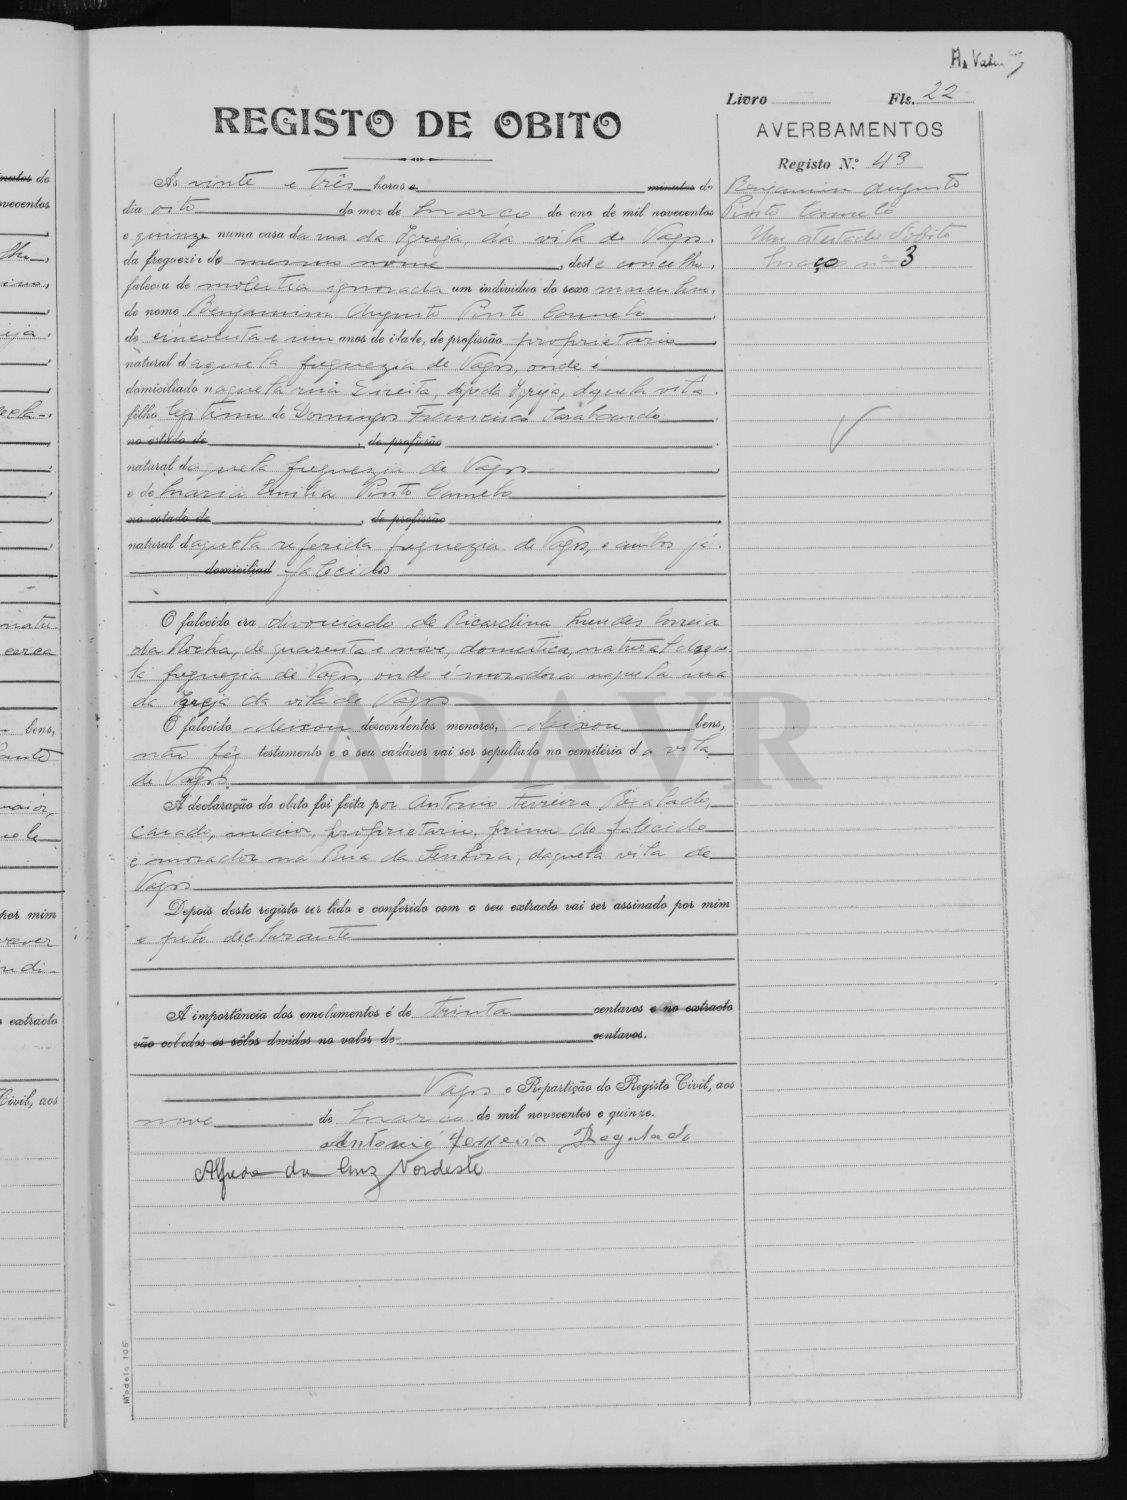 Livro Fls. 22
REGISTO DE OBITO
AVERBAMENTOS
Registo N.º 43
Benjamim Augusto
Pinto Camelo
Um atestado d'obito
Maço nº 3
Ás vinte e três horas e minutos do
dia oito do mez de Março do ano de mil novecentos
e quinze numa casa da rua da Igreja, da vila de Vagos,
da freguezia do mesmo nome, deste concelho,
faleceu de molestia ignorada um individuo do sexo masculino,
de nome Benjamim Augusto Pinto Camelo
de cincoenta e um anos de idade, de profissão proprietario
natural daquela freguezia de Vagos, onde é
domiciliado naquela rua Direita, digo da Igreja, daquela vila.
filho legitimo de Domingos Francisco Sarabando
no estado de , de profissão
natural daquela freguezia de Vagos
e de Maria Emilia Pinto Camelo
no estado de , de profissão
natural daquela referida freguezia de Vagos, e ambos já
domiciliad falecidos
O falecido era divorciado de Ricardina Mendes Correia
da Rocha, de quarenta e nove, domestica, natural daque
la freguezia de Vagos, onde é moradora naquela rua
da Igreja da vila de Vagos
O falecido deixou descendentes menores, deixou bens,
não fez testamento e o seu cadáver vai ser sepultado no cemitério da vila
de Vagos.
A declaração do obito foi feita por Antonio Ferreira Regalado,
casado, maior, proprietario, primo do falecido
e morador na Rua da Senhora, daquela vila de
Vagos
Depois deste registo ser lido e conferido com o seu extracto vai ser assinado por mim
e pelo declarante
A importância dos emolumentos é de trinta centavos e no extracto
vão colados os sêlos devidos no valor de centavos.
Vagos e Repartição do Registo Civil, aos
nove de Março de mil novecentos e quinze.
Antonio Ferreira Regalado
Alfredo da Cruz Nordeste
Modelo 105
ADAVR